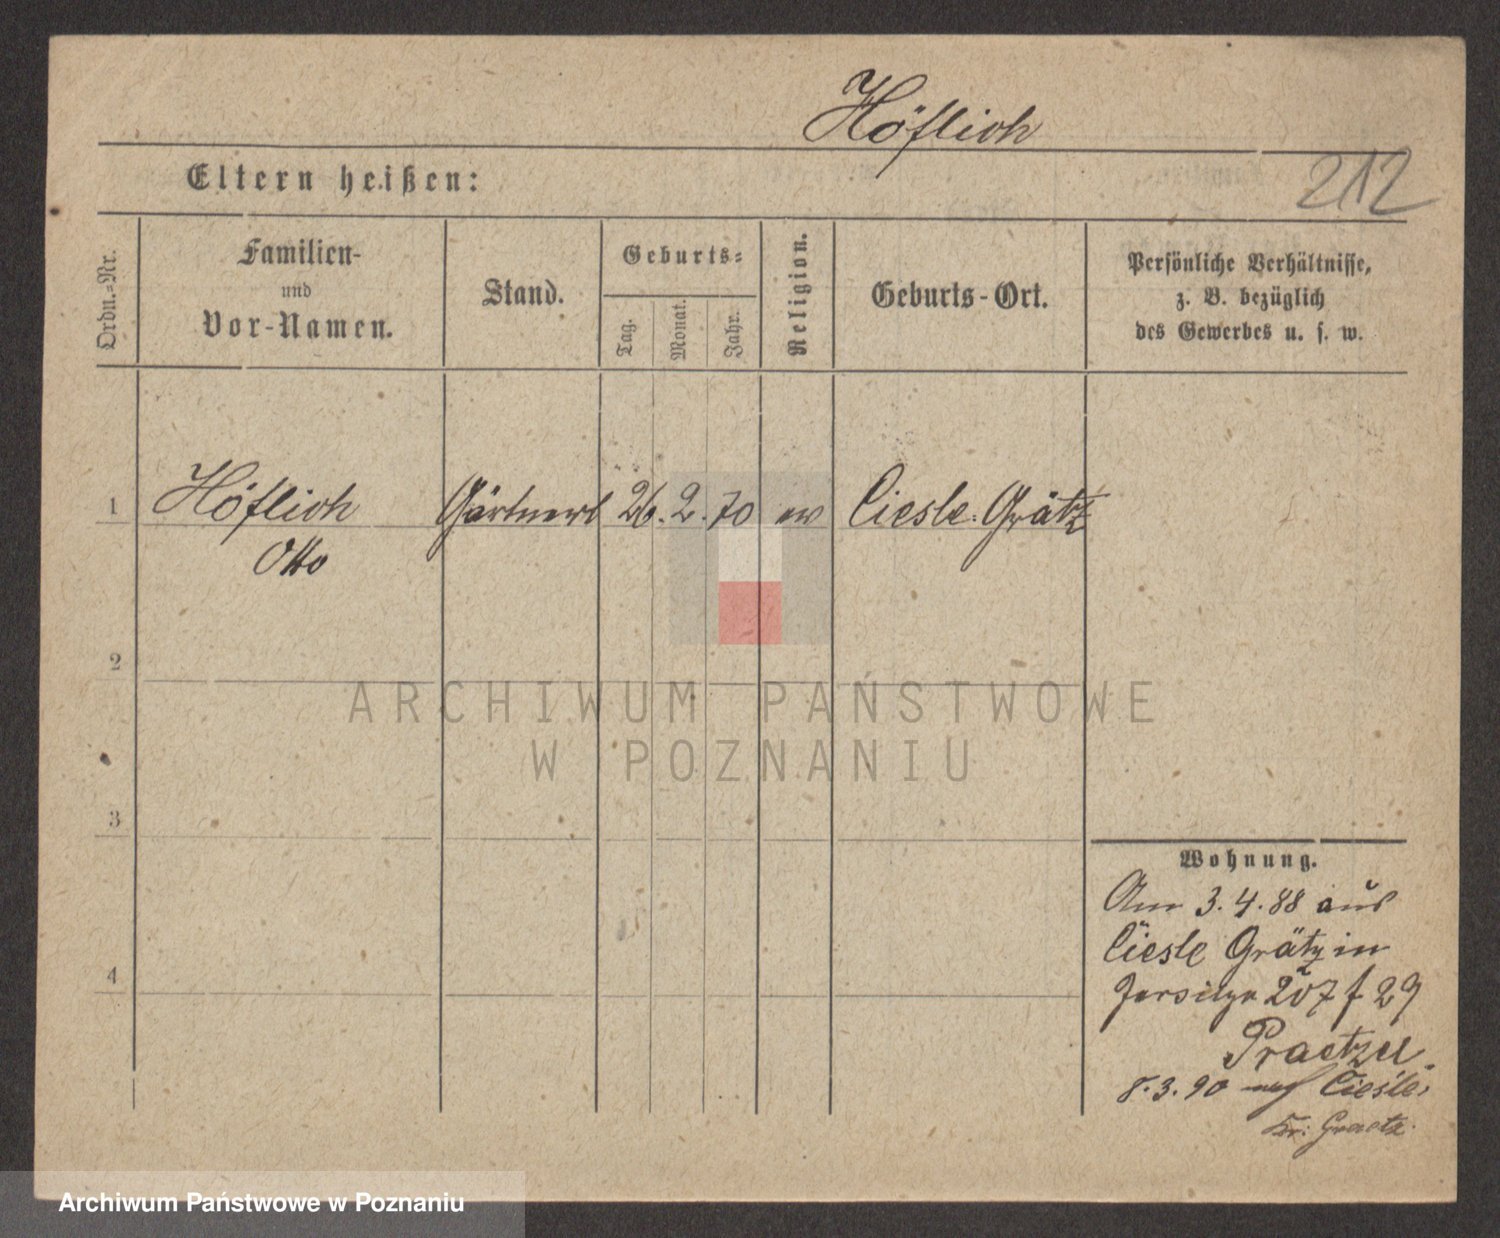 Höflich
212
Eltern heißen:
Ordn.-Nr.
Familien-
und
Vor-Namen.
Stand.
Geburts-
Tag.
Monat.
Jahr.
Religion.
Geburts-Ort.
Persönliche Verhältnisse,
z. B. bezüglich
des Gewerbes u. s. w.
1 Höflich Gärtnerl 26. 2. 70 ev Ciesle. Grätz
Otto
2
3
4
Wohnung.
Am 3.4.88 aus
Ciesle Grätz in
207 f 29
8.3.90 nach Ciesle,
Kr: Graetz.
ARCHIWUM PAŃSTWOWE
W POZNANIU
Archiwum Państwowe w Poznaniu